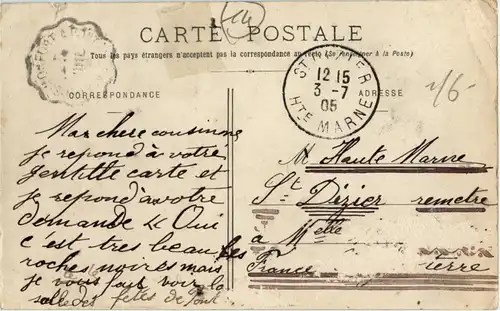 CARTE POSTALE
Tous les pays étrangers n'acceptent pas la correspondance au recto (Se renseigner à la Poste)
CORRESPONDANCE
ADRESSE
ST DIZIER
12 15
3 - 7
05
HTE MARNE
2/6
Ma chere cousinne
je repond à votre
gentitte carte et
je repond a votre
demande « Oui
c est tres beau les
roches noires mais
je vous fait voir la
salle des fetes de
M Haute Marne
St Dézier remetre
a Melle
France
Pierre